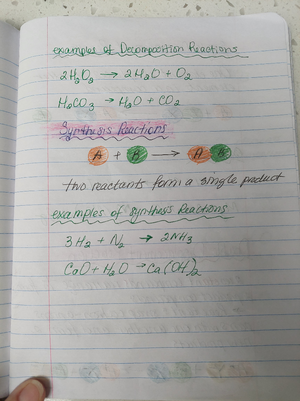 examples of Decomposition Reactions
2H₂O₂ → 2H₂O + O₂
H₂CO₃ → H₂O + CO₂
Synthesis Reactions
A + B → A B
two reactants form a single product
examples of synthesis Reactions
3H₂ + N₂ → 2NH₃
CaO + H₂O → Ca(OH)₂